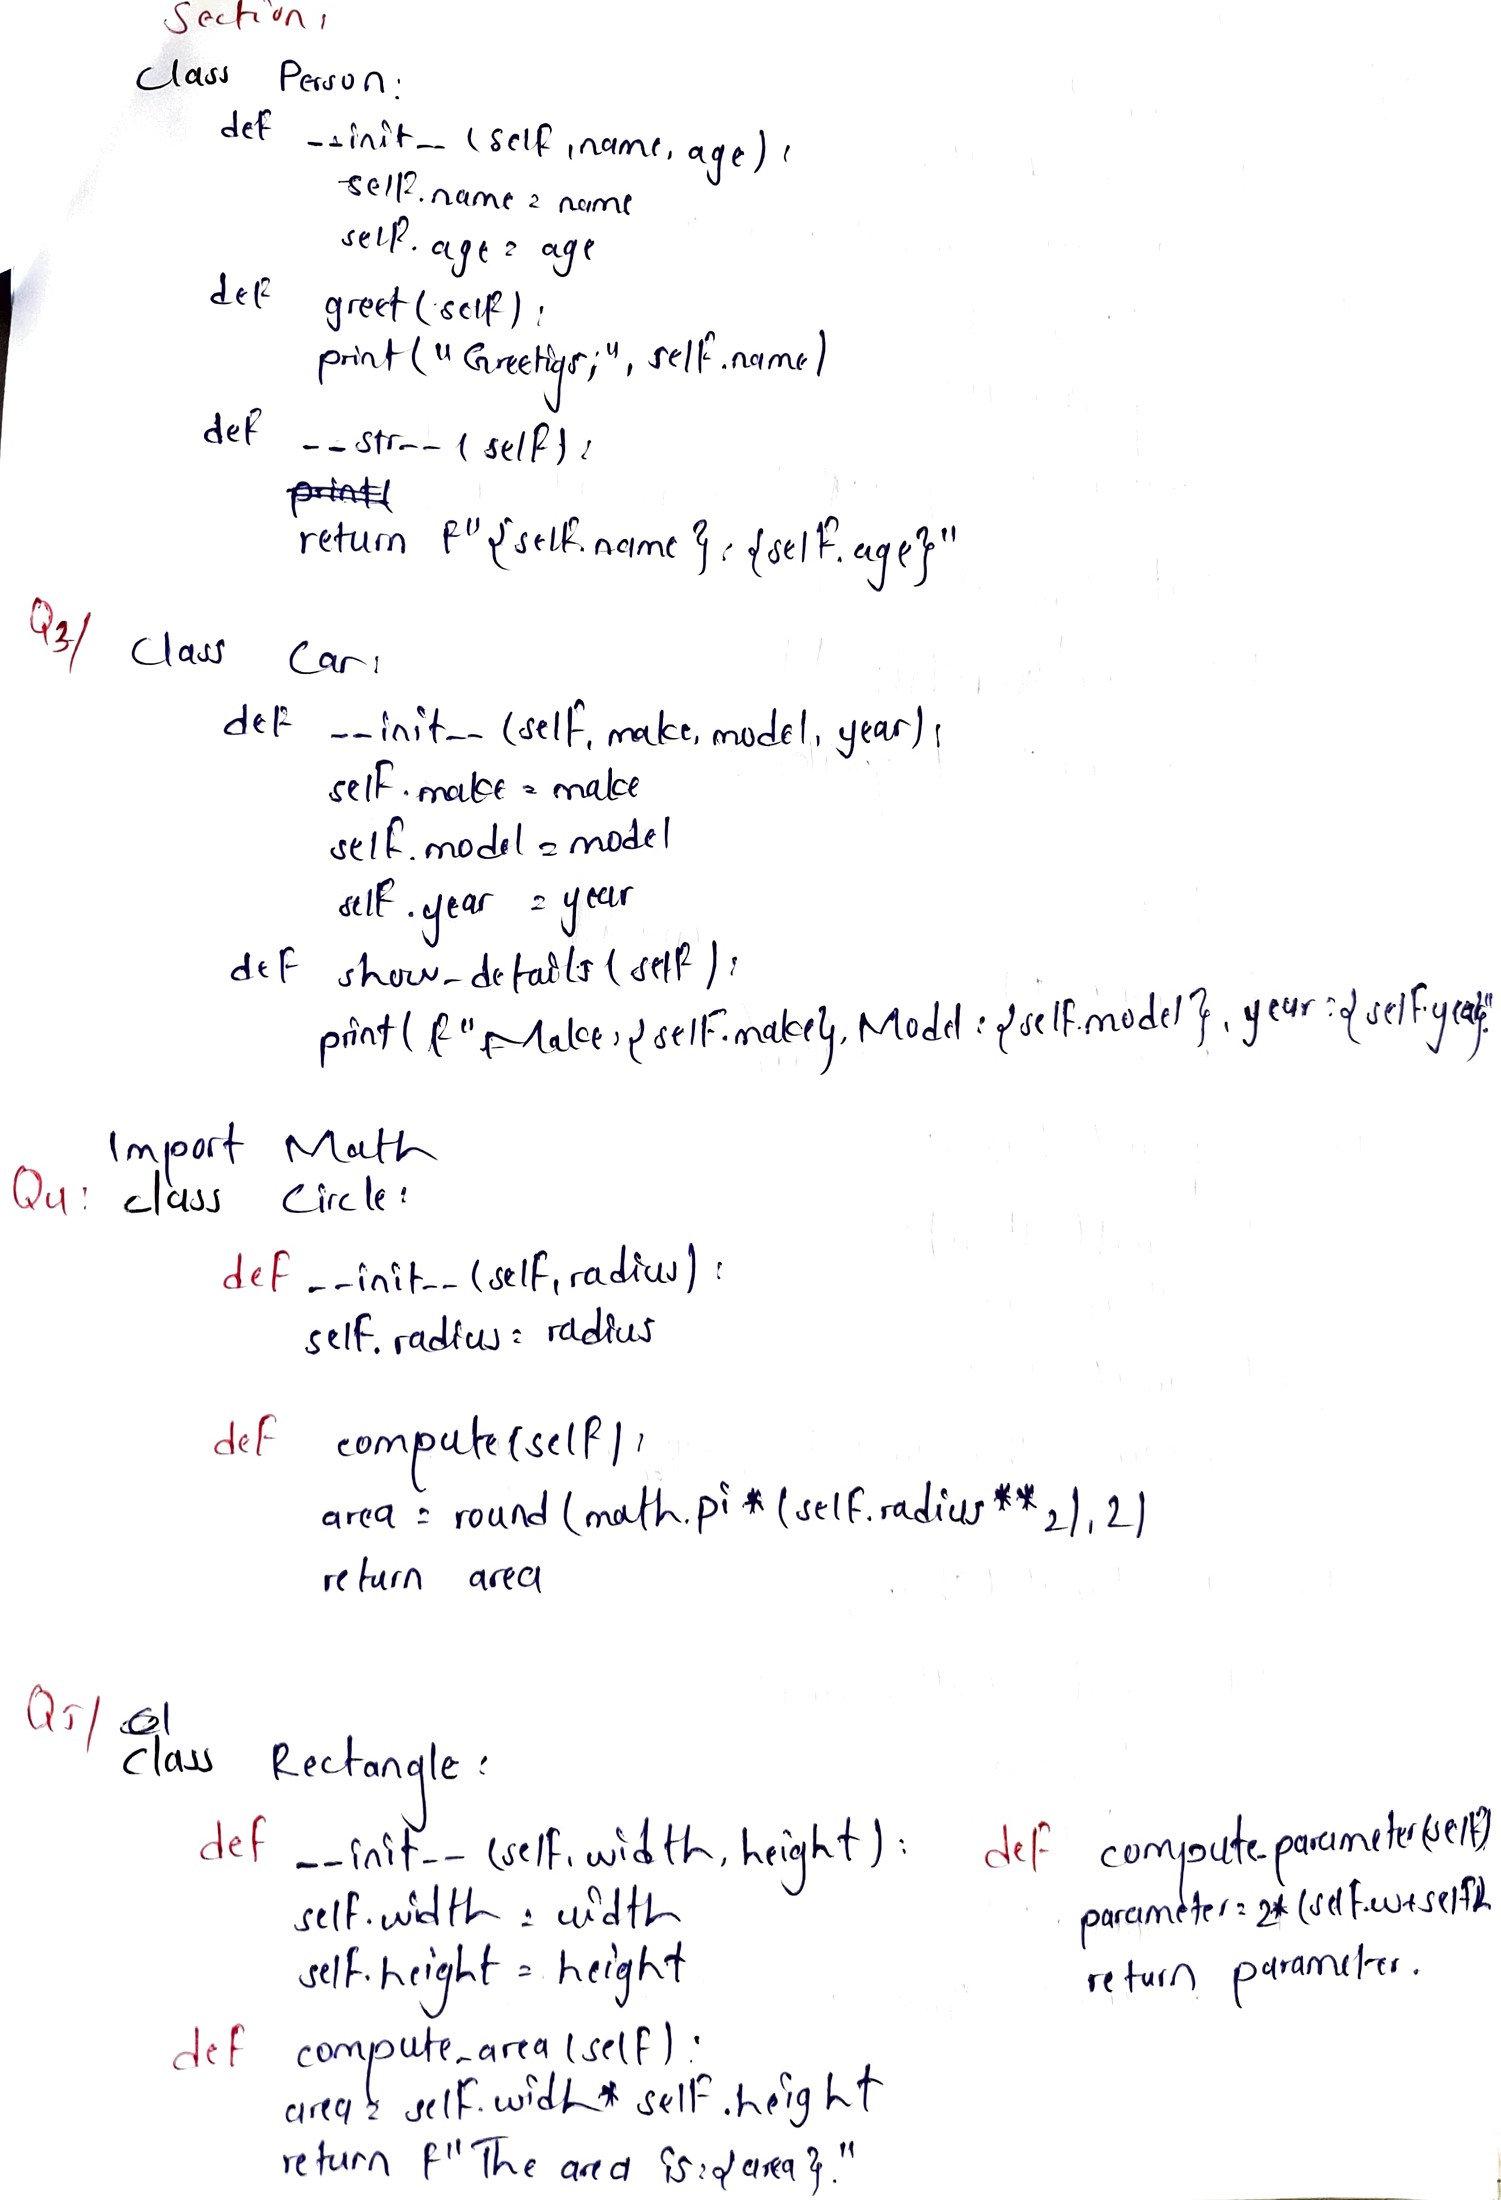 Section:
class Person:
def __init__ (self, name, age):
self.name = name
self.age = age
def greet(self):
print("Greetigs;", self.name)
def __str__(self):
print(
return f"{self.name}: {self.age}"
Q3/ class Car:
def __init__ (self, make, model, year):
self.make = make
self.model = model
self.year = year
def show_details(self):
print(f"Make:{self.make}, Model:{self.model}, year:{self.year}"
Import Math
Q4: class Circle:
def __init__(self, radius):
self.radius = radius
def compute(self):
area = round(math.pi*(self.radius**2),2)
return area
Q5/ Cl
class Rectangle:
def __init__ (self, width, height):
self.width = width
self.height = height
def compute_area(self):
area = self.widh* self.height
return f"The area is:{area}."
def compute_parameter(self)
parameter = 2*(self.w+self.h
return parameter.